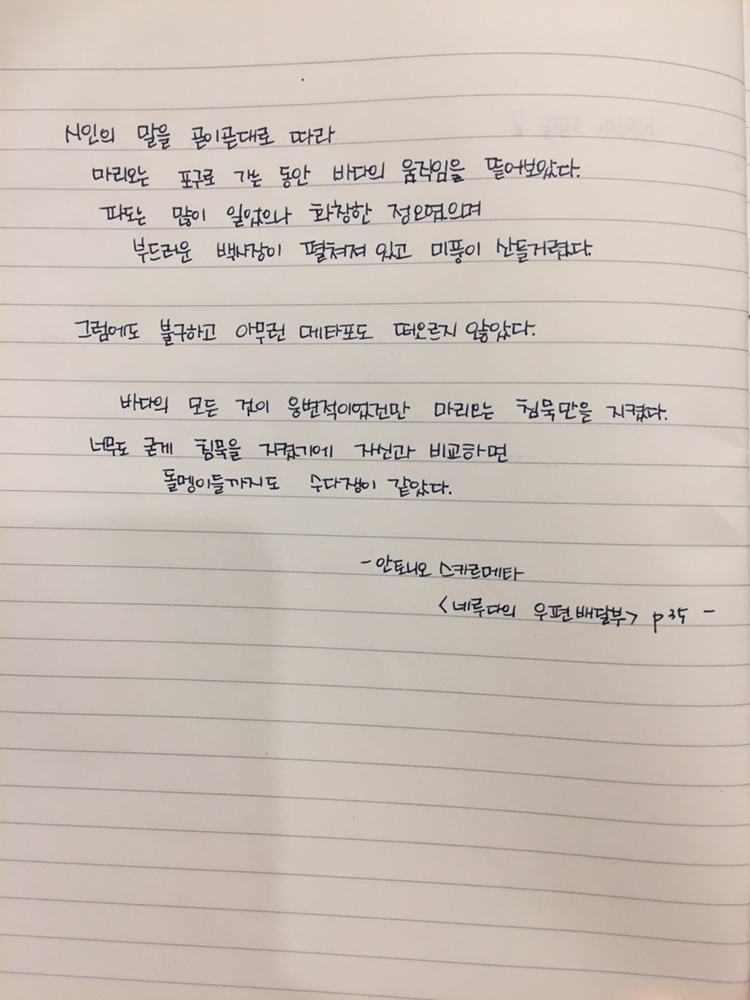 시인의 말을 곧이곧대로 따라
마리오는 포구로 가는 동안 바다의 움직임을 뜯어보았다.
파도는 많이 일었으나 화창한 정오였으며
부드러운 백사장이 펼쳐져 있고 미풍이 산들거렸다.
그럼에도 불구하고 아무런 메타포도 떠오르지 않았다.
바다의 모든 것이 웅변적이었건만 마리오는 침묵만을 지켰다.
너무도 굳게 침묵을 지켰기에 자신과 비교하면
돌멩이들까지도 수다쟁이 같았다.
- 안토니오 스카르메타
<네루다의 우편배달부> p35 -